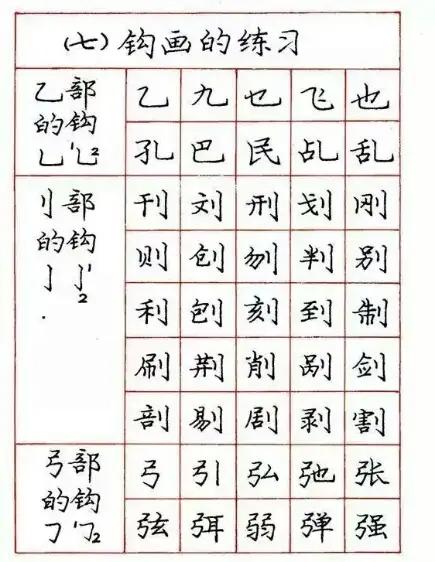 (七)钩画的练习
乙部
的钩
乚 ¹乚²
乙 九 乜 飞 也
孔 巴 民 乩 乱
刂部
的钩
亅 亅¹₂
刊 刘 刑 划 刚
则 创 刎 判 别
利 刨 刻 到 制
刷 荆 削 剐 剑
剖 剔 剧 剥 割
弓部
的钩
㇆ ¹㇆₂
弓 引 弘 弛 张
弦 弭 弱 弹 强